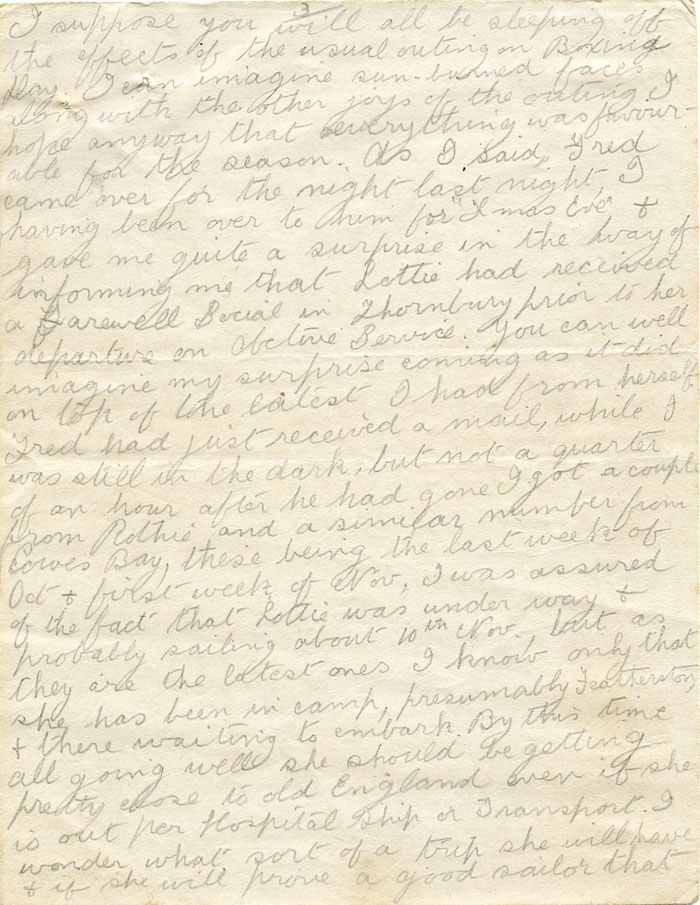 3
I suppose you will all be sleeping off
the effects of the usual outing on Boxing
Day. I can imagine sun-burned faces
along with the other joys of the outing I
hope anyway that everything was favour
able for the season. As I said, Fred
came over for the night last night, I
having been over to him for Xmas Eve &
gave me quite a surprise in the way of
informing me that Lottie had received
a Farewell Social in Thornbury prior to her
departure on Active Service. You can well
imagine my surprise coming as it did
on top of the latest I had from herself
Fred had just received a mail, while I
was still in the dark, but not a quarter
of an hour after he had gone I got a couple
from Rothie and a similar number from
Cowes Bay, these being the last week of
Oct & first week of Nov, I was assured
of the fact that Lottie was under way &
probably sailing about 10th Nov, but as
they are the latest ones I know only that
she has been in camp, presumably Featherston
& there waiting to embark. By this time
all going well she should be getting
pretty close to old England even if she
is out per Hospital Ship or Transport. I
wonder what sort of a trip she will have
& if she will prove a good sailor that